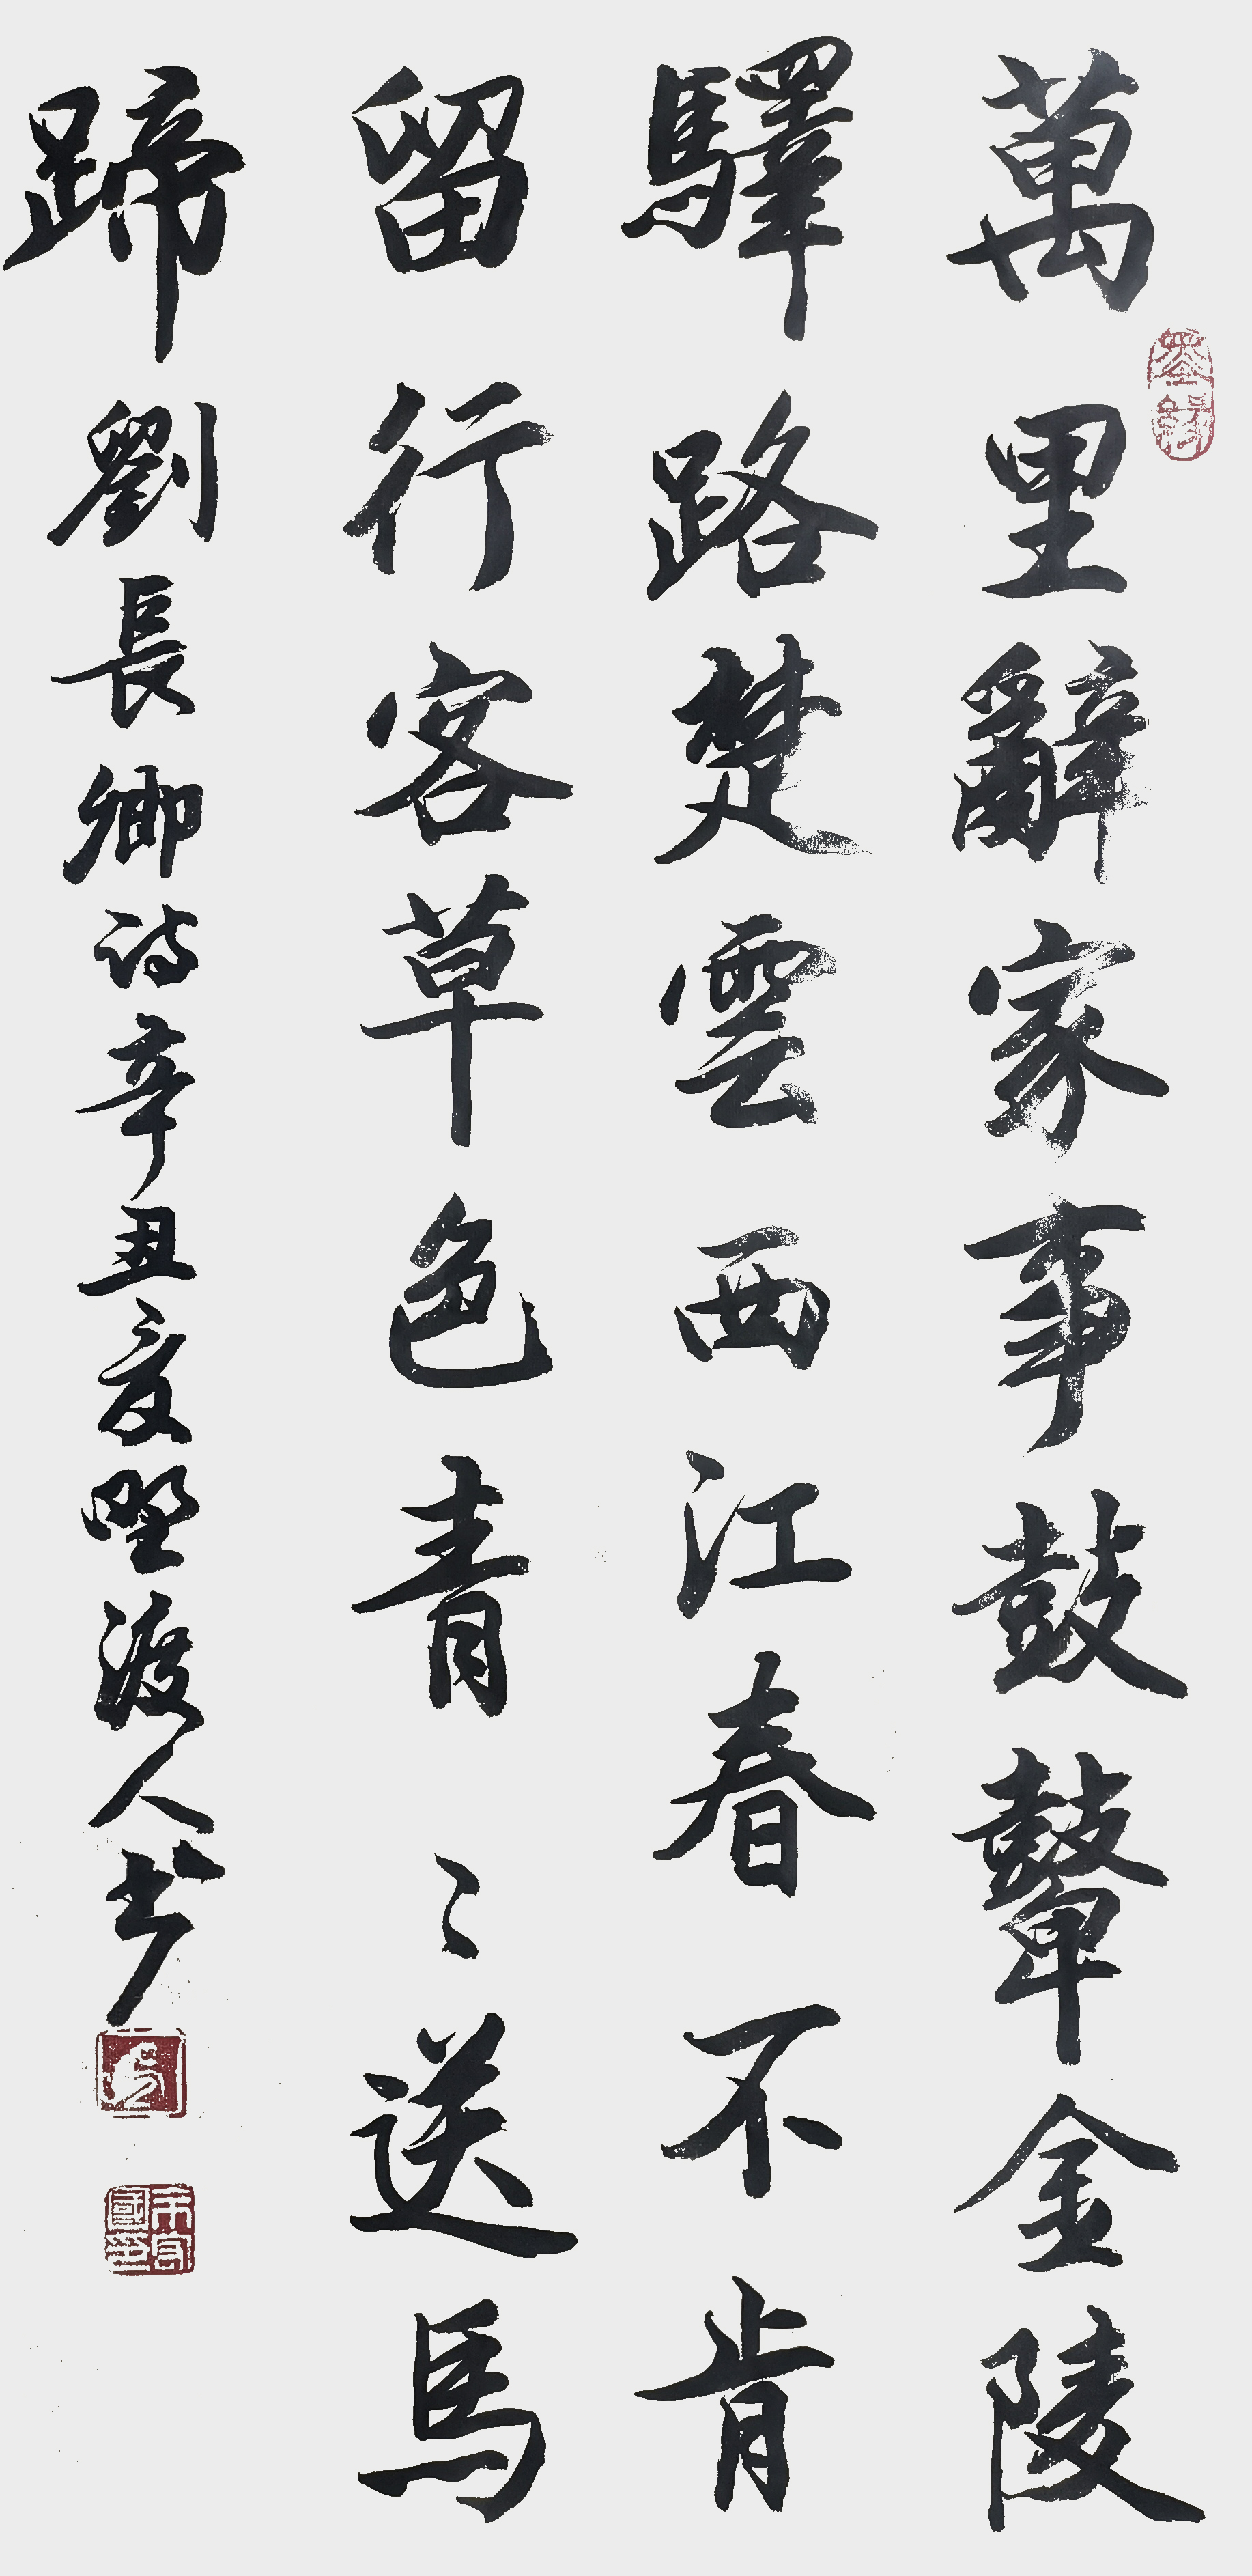 萬里辭家事鼓鼙金陵
驛路楚雲西江春不肯
留行客草色青〻送馬
蹄劉長卿詩辛丑夏野渡人书